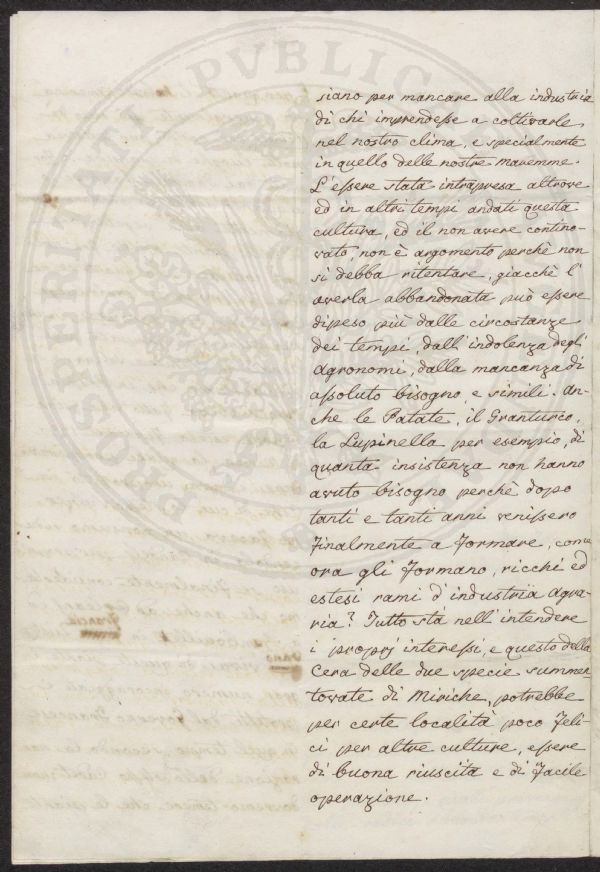 PROSPERITATI PVBLICAE
siano per mancare alla industria
di chi imprendesse a coltivarle
nel nostro clima, e specialmente
in quello delle nostre maremme.
L'essere stata intrapresa altrove
ed in altri tempi andati questa
cultura, ed il non avere contino-
vato, non è argomento perchè non
si debba ritentare, giacchè l'
averla abbandonata può essere
dipeso più dalle circostanze
dei tempi, dall'indolenza degli
agronomi, dalla mancanza di
assoluto bisogno, e simili. An-
che le Patate, il Granturco,
la Lupinella per esempio, di
quanta insistenza non hanno
avuto bisogno perchè dopo
tanti e tanti anni venissero
finalmente a formare, come
ora gli formano, ricchi ed
estesi rami d'industria agra-
ria? Tutto stà nell'intendere
i proprj interessi, e questo della
Cera delle due specie summen
tovate di Miriche, potrebbe
per certe località poco feli-
ci per altre culture, essere
di buona riuscita e di facile
operazione.